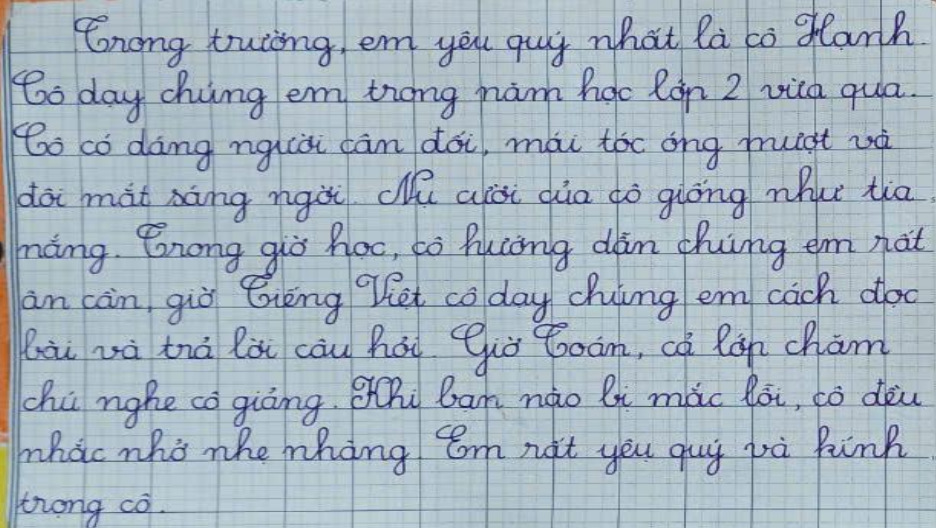 Trong trường, em yêu quý nhất là cô Hạnh.
Cô dạy chúng em trong năm học lớp 2 vừa qua.
Cô có dáng người cân đối, mái tóc óng mượt và
đôi mắt sáng ngời. Nụ cười của cô giống như tia
nắng. Trong giờ học, cô hướng dẫn chúng em rất
ân cần, giờ Tiếng Việt cô dạy chúng em cách đọc
bài và trả lời câu hỏi. Giờ Toán, cả lớp chăm
chú nghe cô giảng. Khi bạn nào bị mắc lỗi, cô đều
nhắc nhở nhẹ nhàng. Em rất yêu quý và kính
trọng cô.